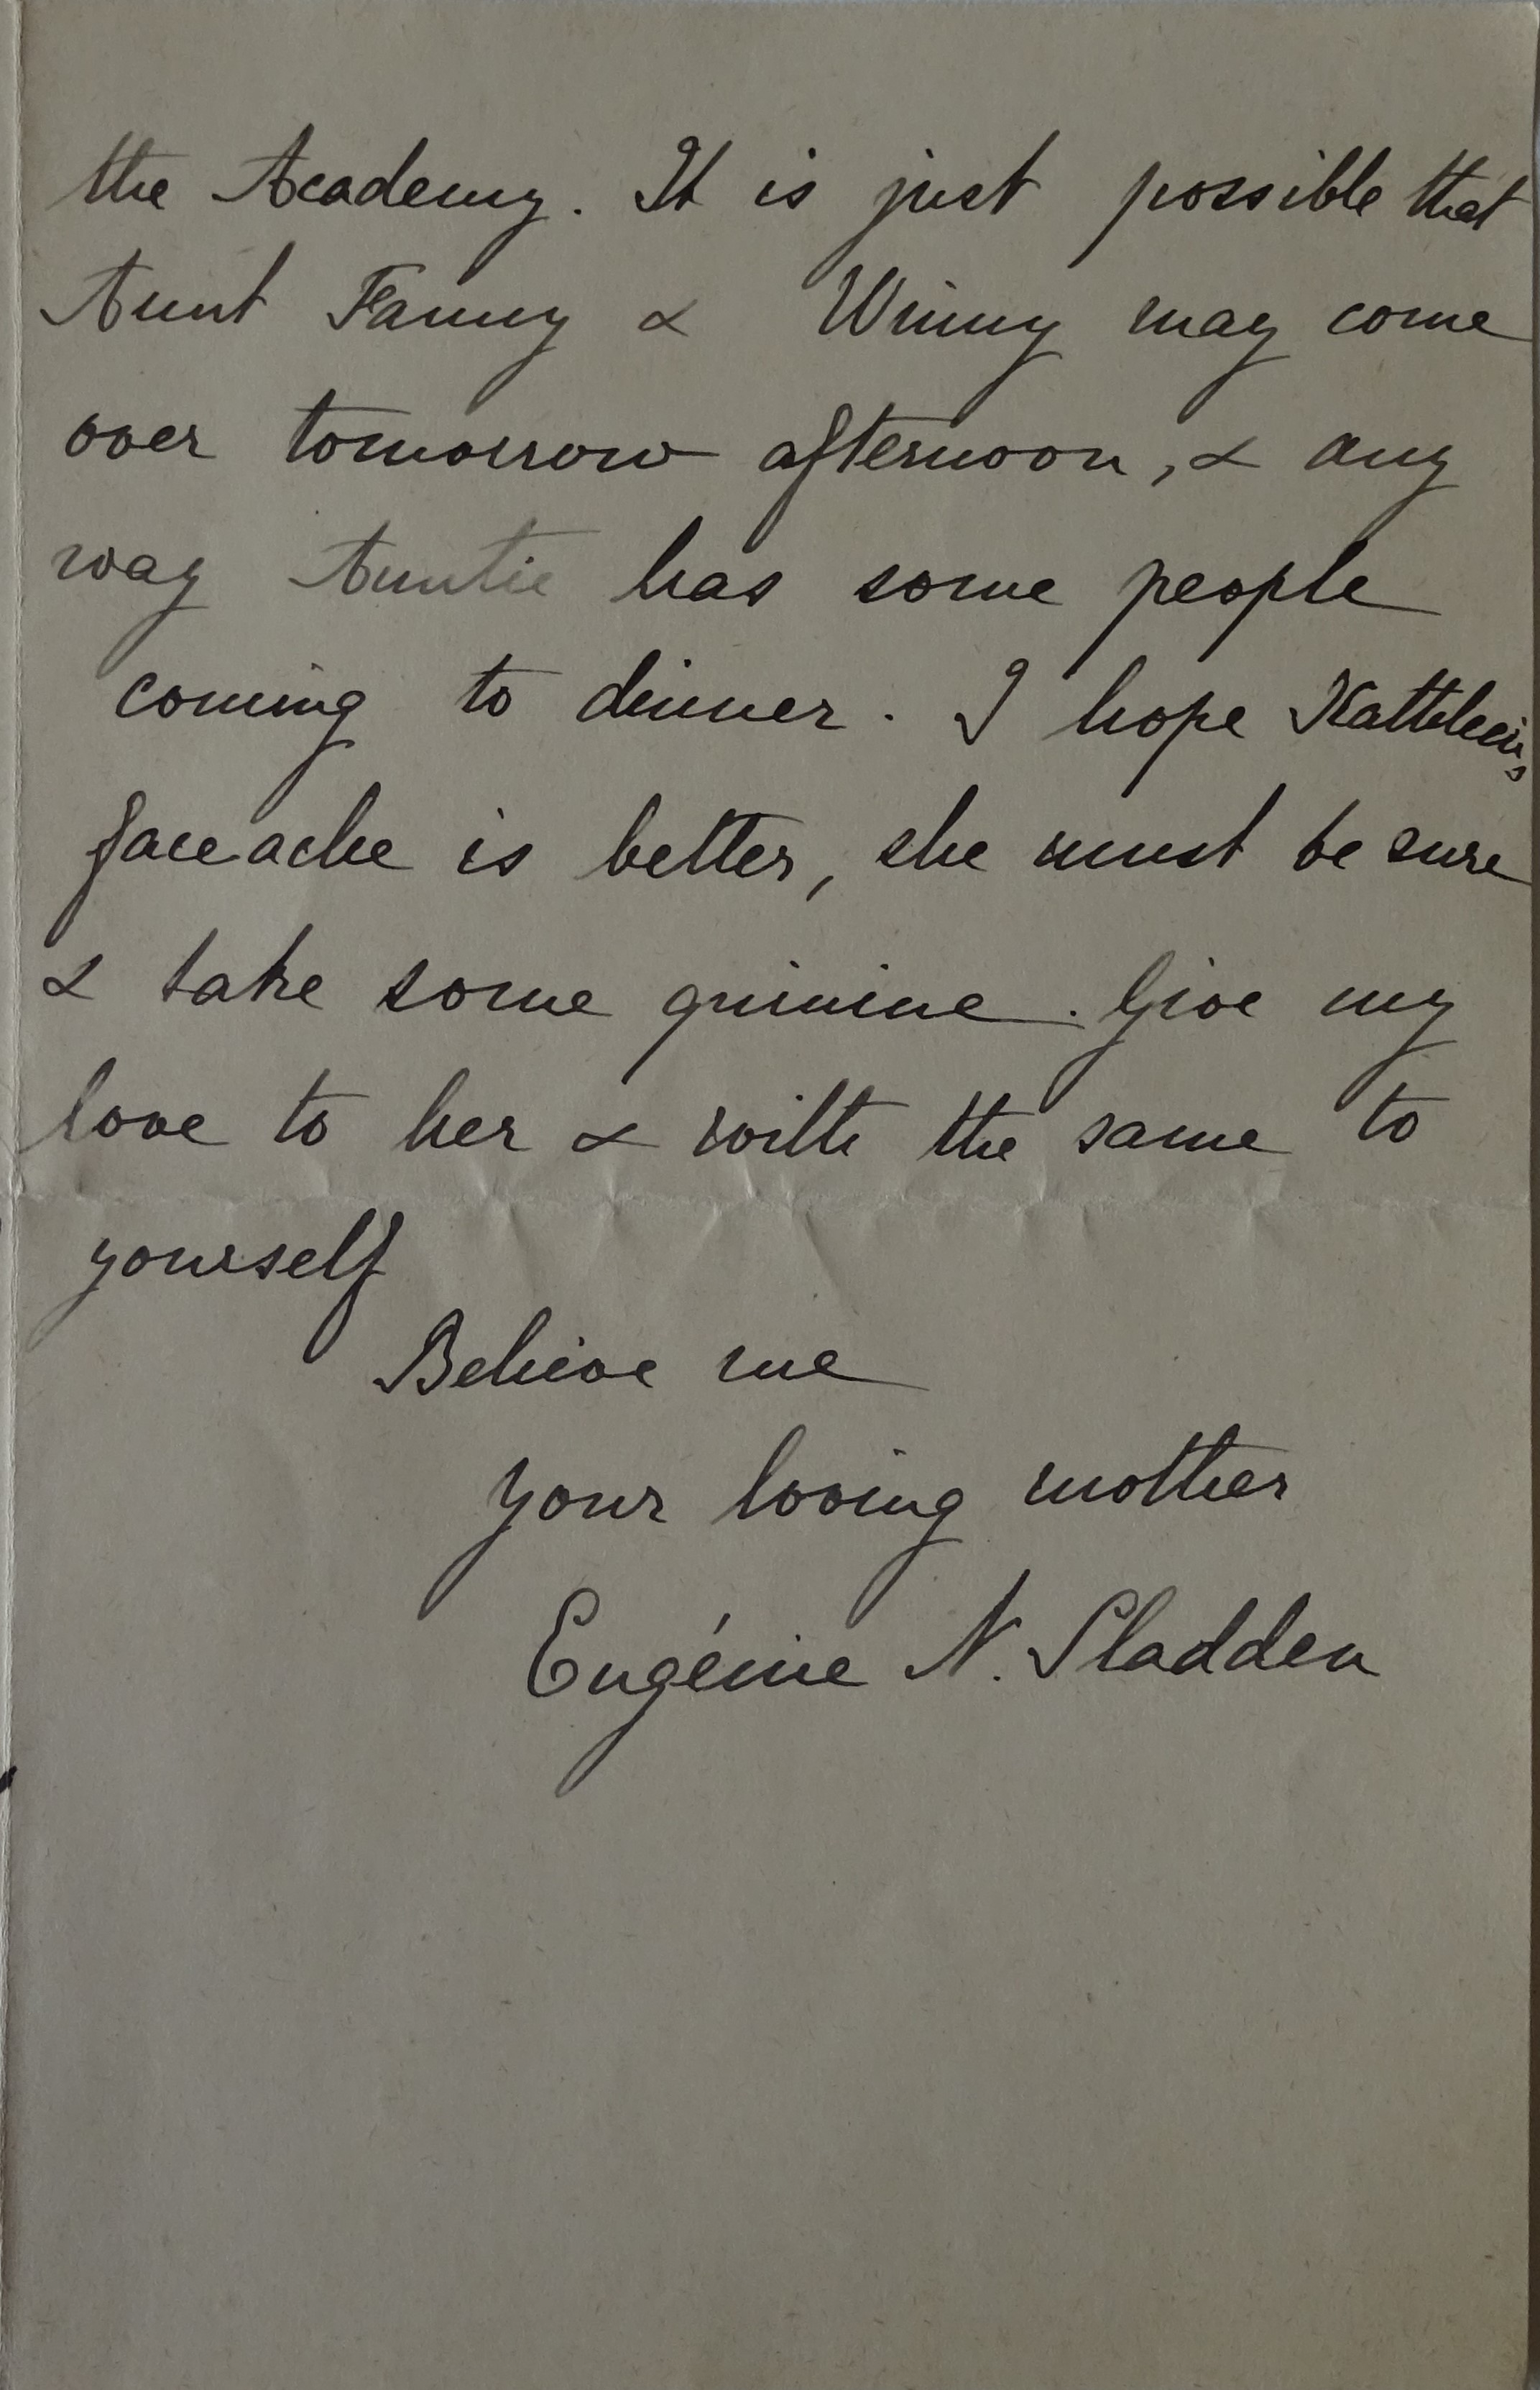 the Academy. It is just possible that
Aunt Fanny & Winny may come
over tomorrow afternoon, & any
way Auntie has some people
coming to dinner. I hope Kathleen's
face ache is better, she must be sure
& take some quinine. Give my
love to her & with the same to
yourself
Believe me
your loving mother
Eugénie N. Sladden